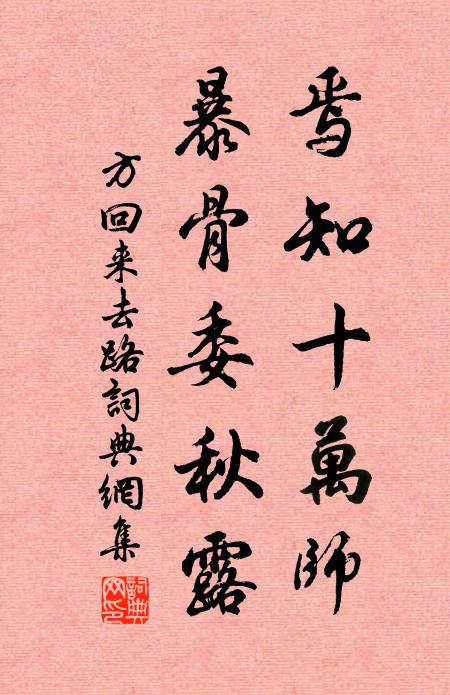 焉知十萬師
暴骨委秋露
方回来去路詞典網集
詞典网印